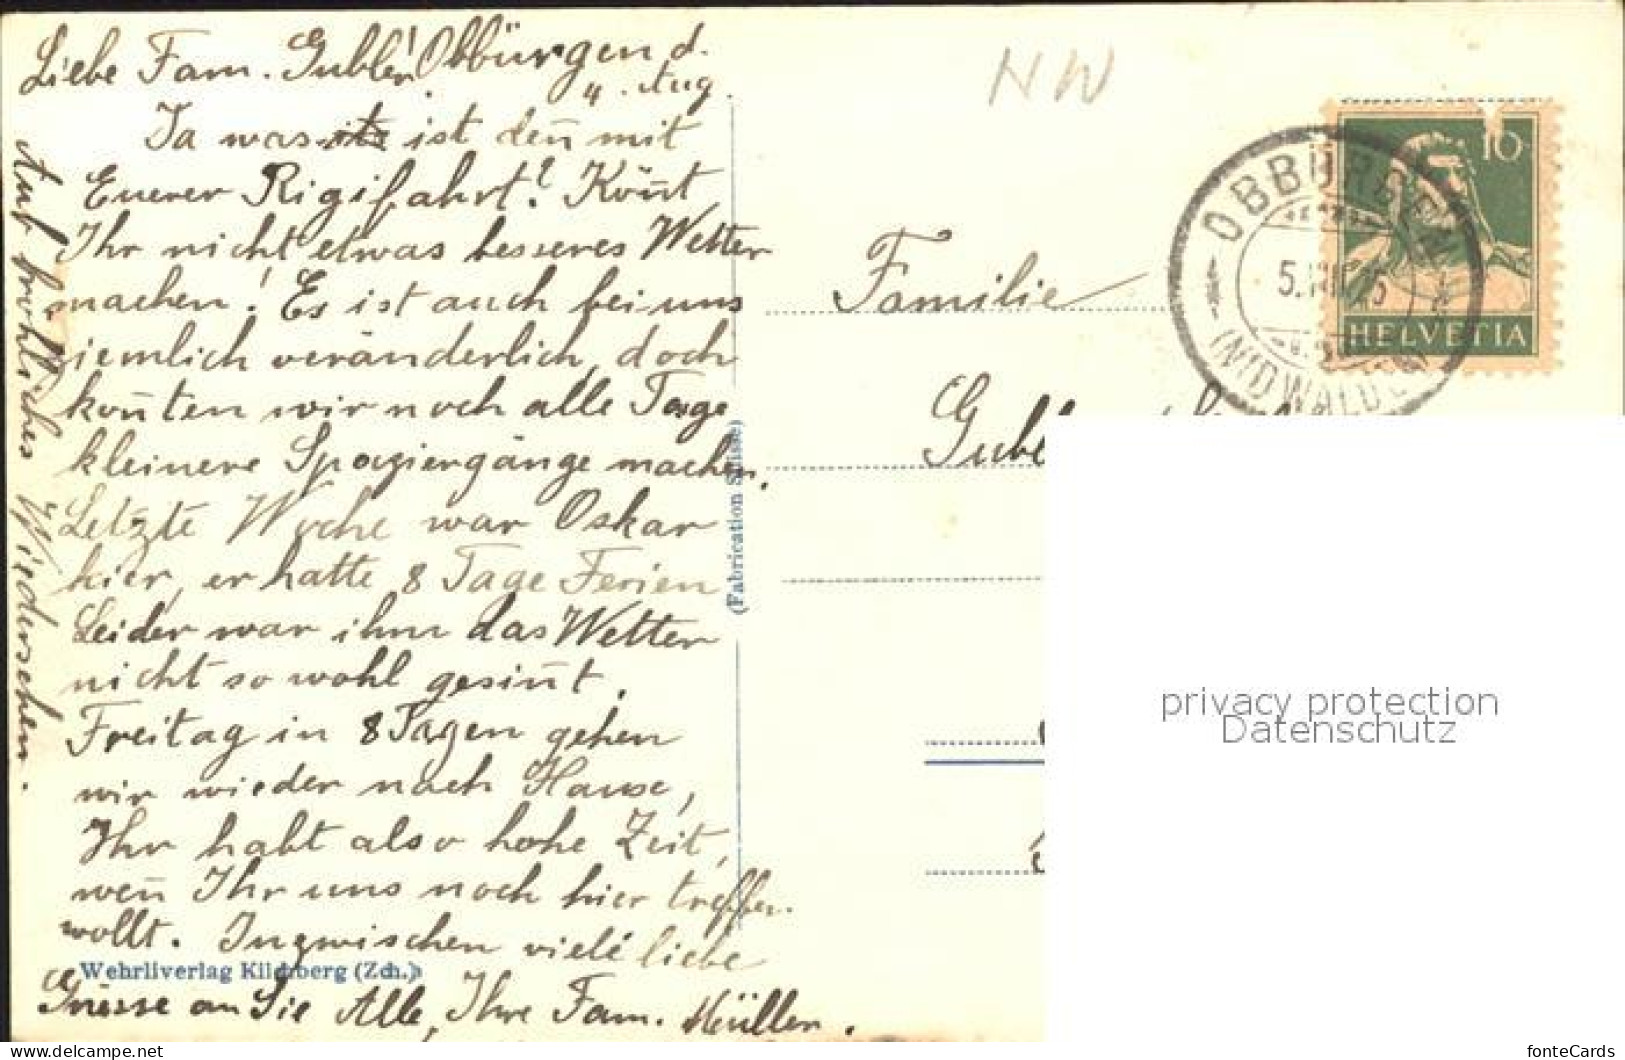 Liebe Fam. Gubler! Obbürgen d.
4. Aug.
Ja was ist deñ mit
Euerer Rigifahrt? Köñt
Ihr nicht etwas besseres Wetter
machen! Es ist auch bei uns
ziemlich veränderlich, doch
koñten wir noch alle Tage
kleinere Spaziergänge machen.
Letzte Woche war Oskar
hier, er hatte 8 Tage Ferien
Leider war ihm das Wetter
nicht so wohl gesiñt.
Freitag in 8 Tagen gehen
wir wieder nach Hause,
Ihr habt also hohe Zeit,
weñ Ihr uns noch hier treffen
wollt. Inzwischen viele liebe
Grüsse an Sie Alle, Ihre Fam. Müller.
Auf fröhliches Wiedersehen.
Wehrliverlag Kilchberg (Zch.)
(Fabrication Suisse)
NW
Familie
Gubl
10
HELVETIA
OBBÜRGEN
(NIDWALDEN)
5.VIII.
privacy protection
Datenschutz
fonteCards